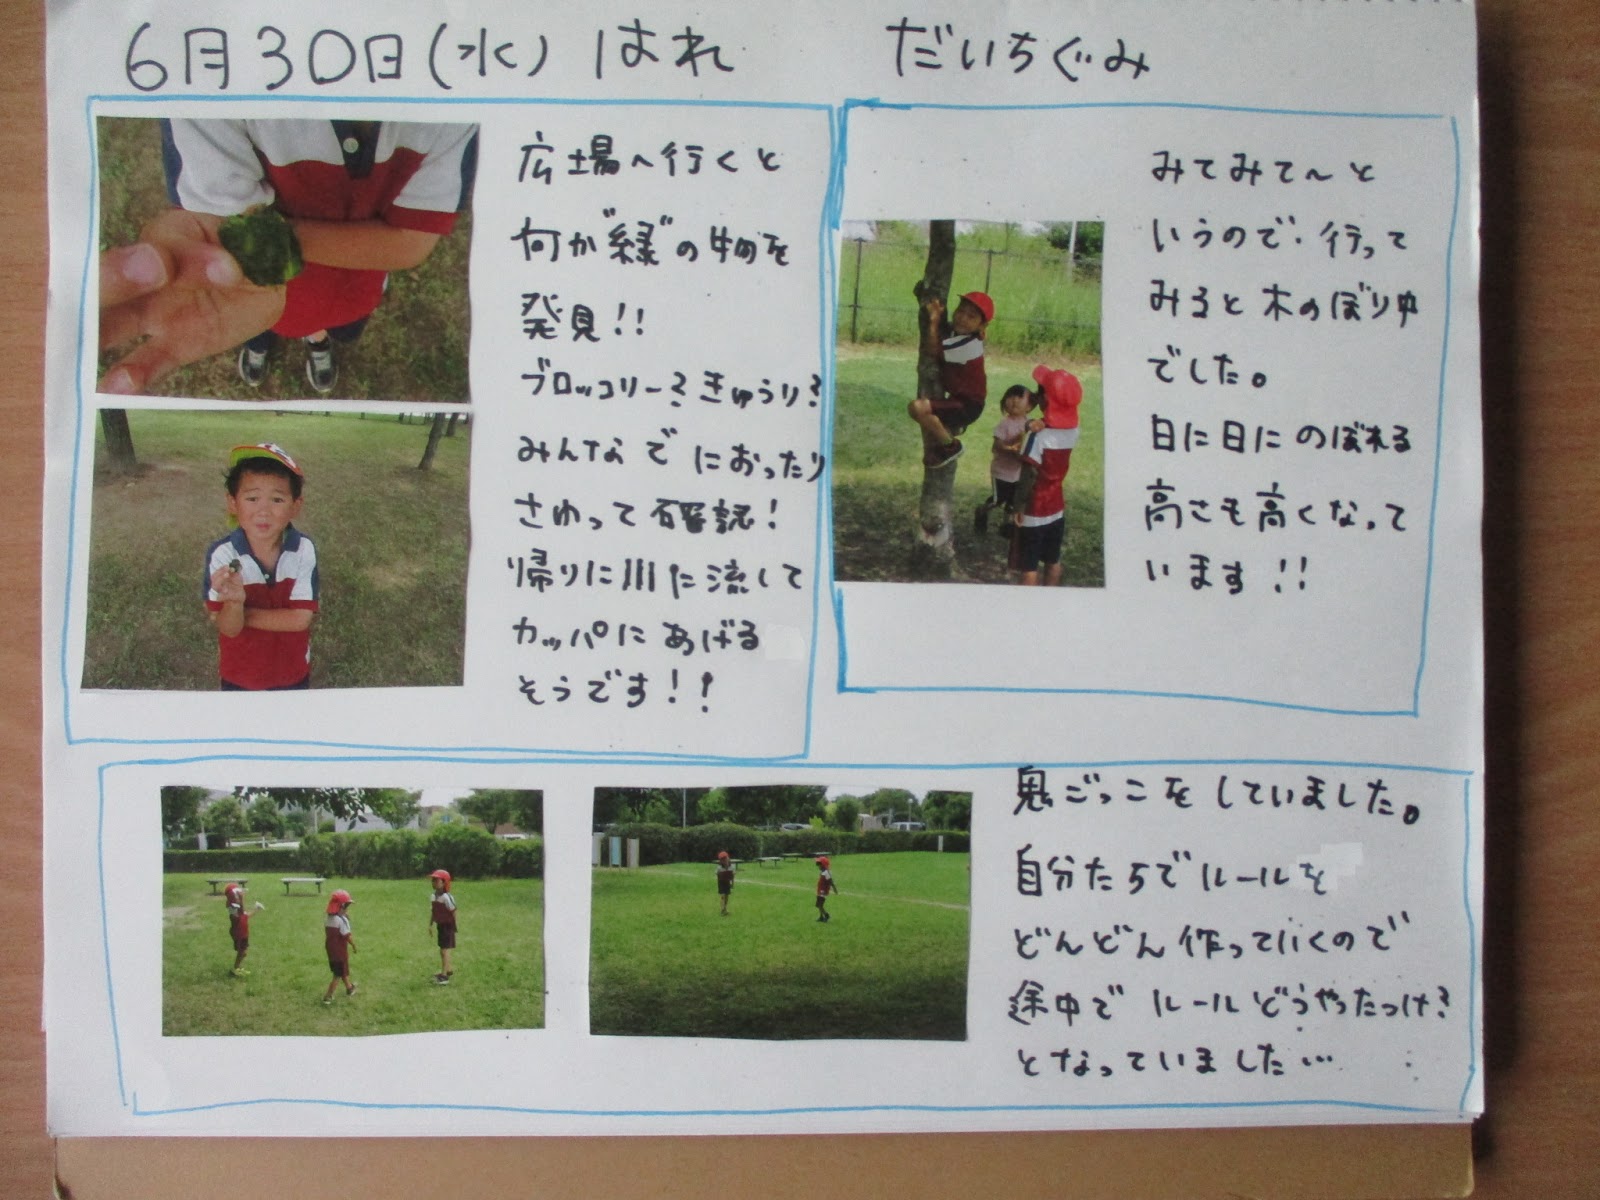 6月30日(水) はれ だいちぐみ
広場へ行くと
何か"緑"の物を
発見!!
ブロッコリー?きゅうり?
みんなで におったり
さわって確認!
帰りに川に流して
カッパに あげる
そうです!!
みてみて〜と
いうので・行って
みると木のぼり中
でした。
日に日に のぼれる
高さも高くなって
います!!
鬼ごっこをしていました。
自分たちでルールを
どんどん作っていくので
途中でルールどうやったっけ?
となっていました…